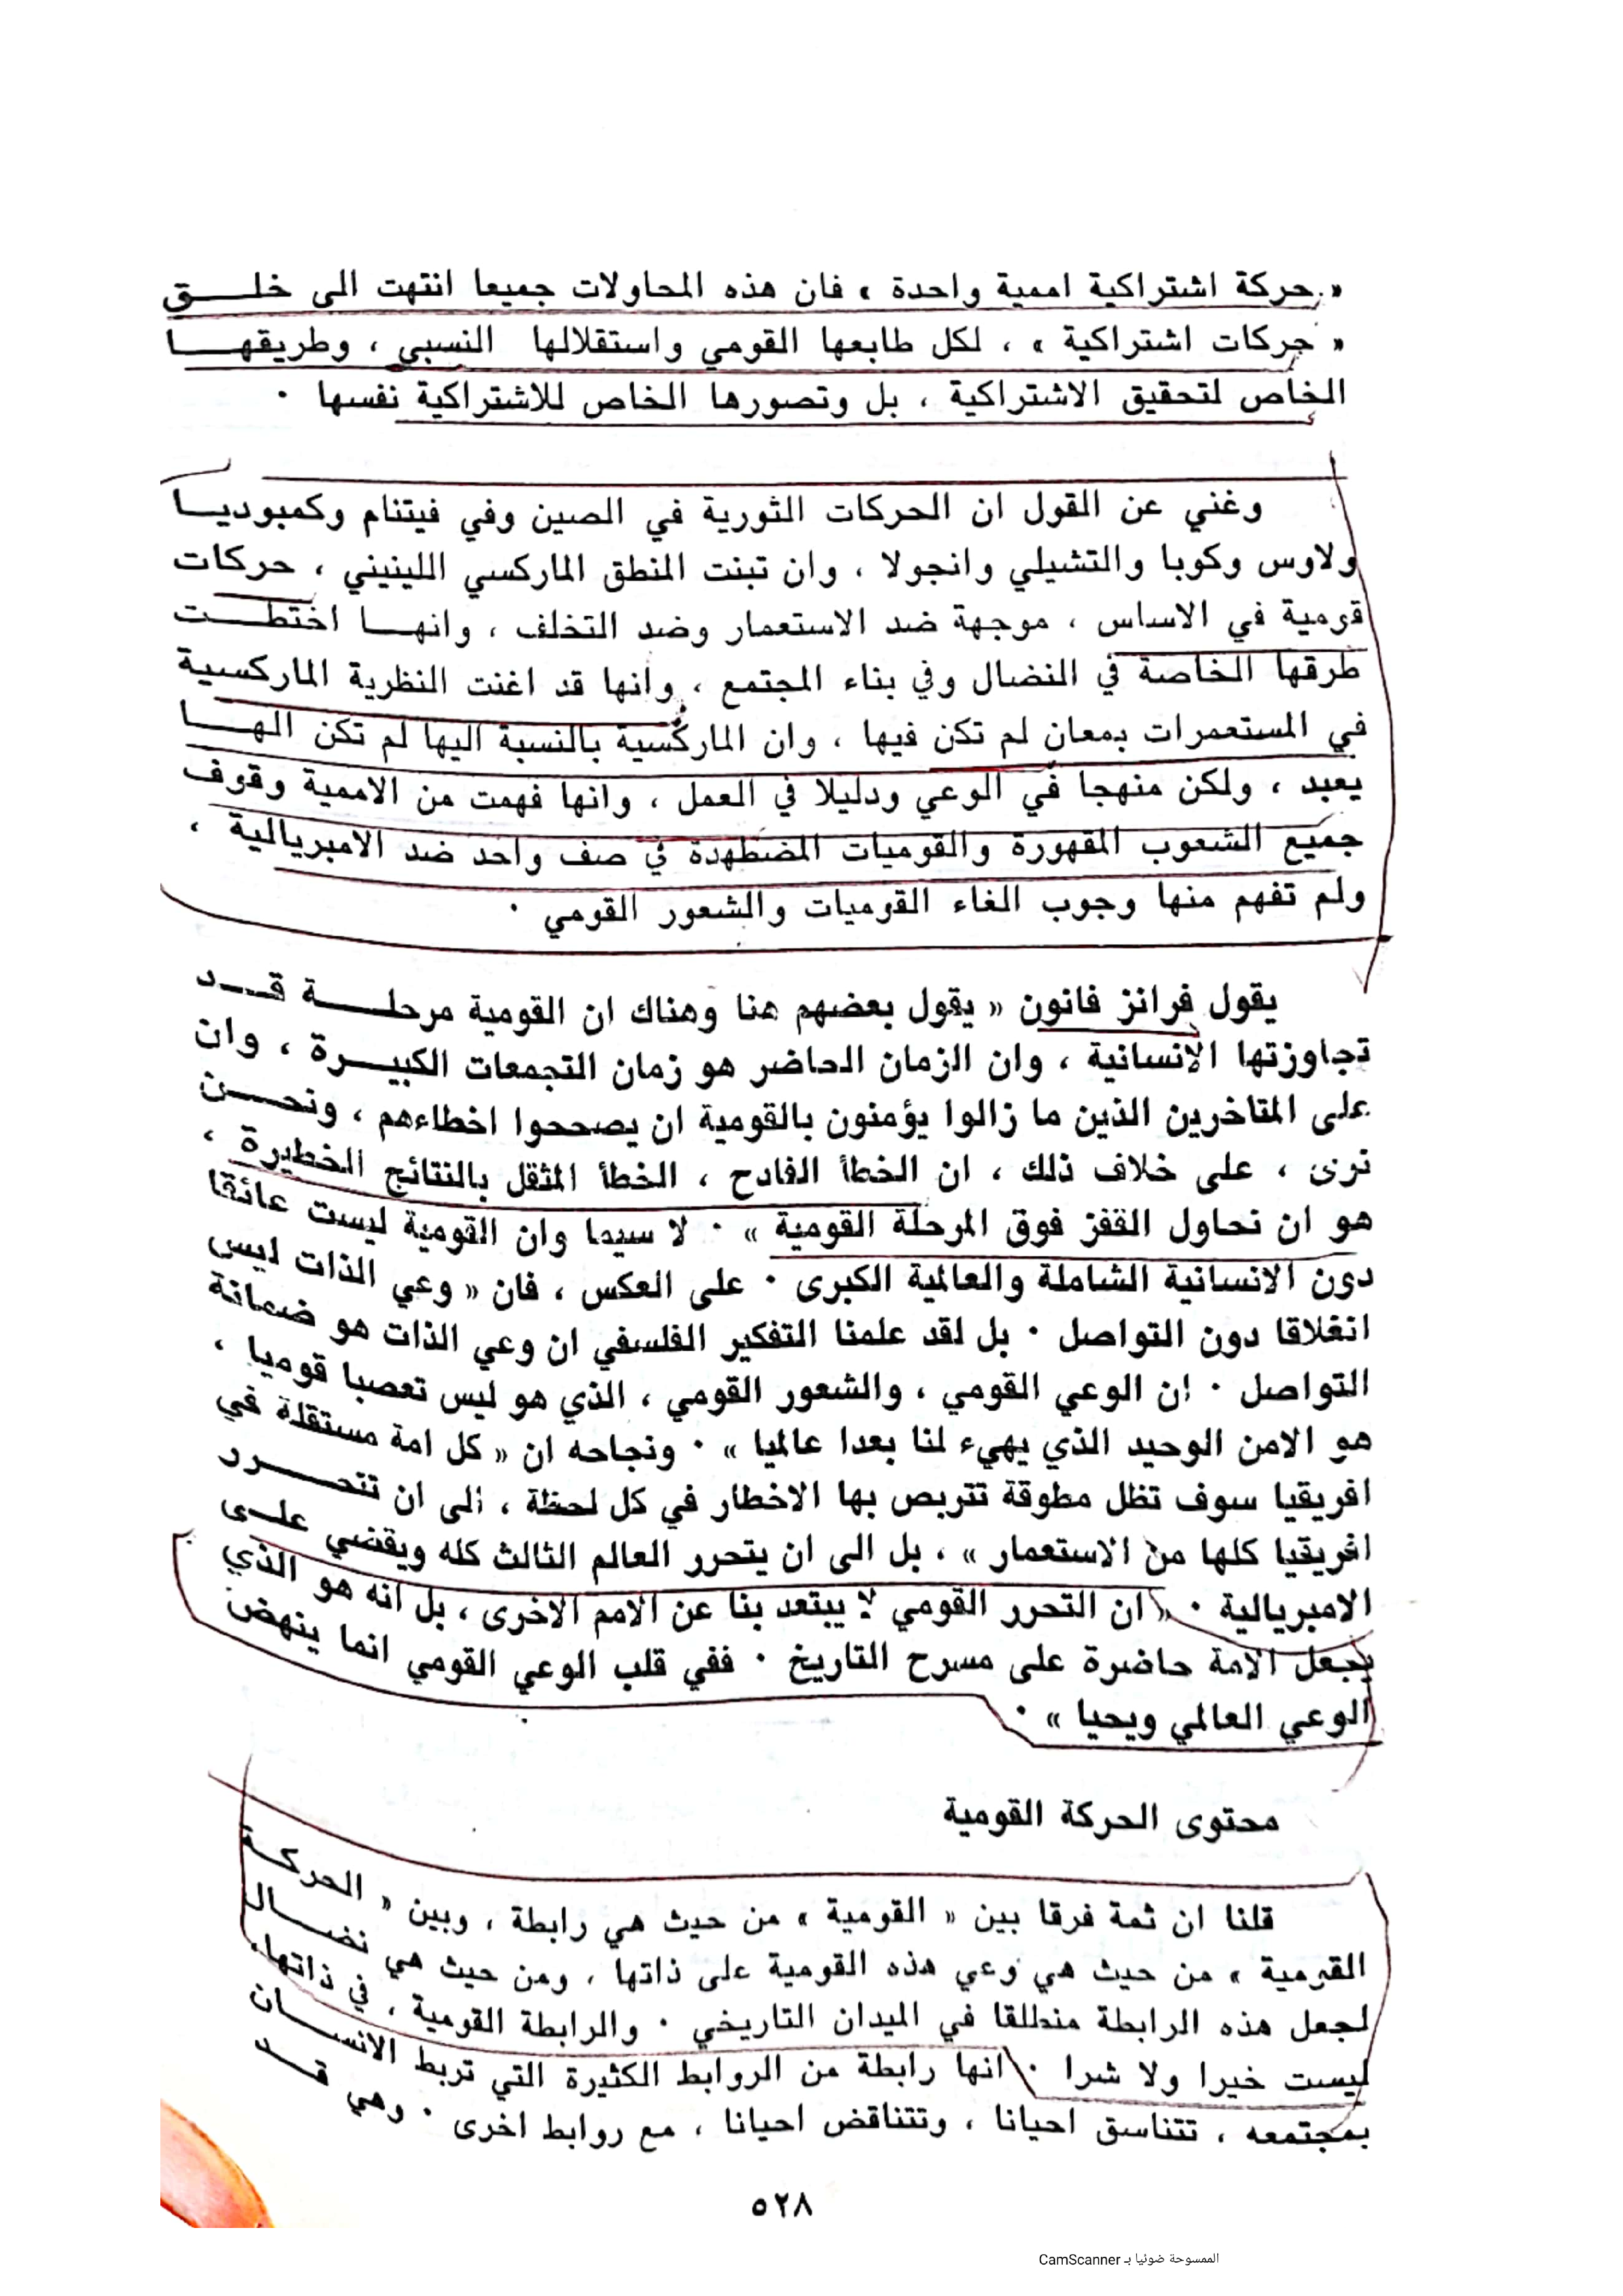 « حركة اشتراكية اممية واحدة » فان هذه المحاولات جميعا انتهت الى خلق
« حركات اشتراكية » ، لكل طابعها القومي واستقلالها النسبي ، وطريقها
الخاص لتحقيق الاشتراكية ، بل وتصورها الخاص للاشتراكية نفسها ٠
وغني عن القول ان الحركات الثورية في الصين وفي فيتنام وكمبوديا
ولاوس وكوبا والتشيلي وانجولا ، وان تبنت المنطق الماركسي اللينيني ، حركات
قومية في الاساس ، موجهة ضد الاستعمار وضد التخلف ، وانها اختطت
طرقها الخاصة في النضال وفي بناء المجتمع ، وانها قد اغنت النظرية الماركسية
في المستعمرات بمعان لم تكن فيها ، وان الماركسية بالنسبة اليها لم تكن الها
يعبد ، ولكن منهجا في الوعي ودليلا في العمل ، وانها فهمت من الاممية وقوف
جميع الشعوب المقهورة والقوميات المضطهدة في صف واحد ضد الامبريالية ،
ولم تفهم منها وجوب الغاء القوميات والشعور القومي ٠
يقول فرانز فانون « يقول بعضهم هنا وهناك ان القومية مرحلة قد
تجاوزتها الانسانية ، وان الزمان الحاضر هو زمان التجمعات الكبيرة ، وان
على المتاخرين الذين ما زالوا يؤمنون بالقومية ان يصححوا اخطاءهم ، ونحن
نرى ، على خلاف ذلك ، ان الخطأ الفادح ، الخطأ المثقل بالنتائج الخطيرة ،
هو ان نحاول القفز فوق المرحلة القومية » ٠ لا سيما وان القومية ليست عائقا
دون الانسانية الشاملة والعالمية الكبرى ٠ على العكس ، فان « وعي الذات ليس
انغلاقا دون التواصل ٠ بل لقد علمنا التفكير الفلسفي ان وعي الذات هو ضمانة
التواصل ٠ ان الوعي القومي ، والشعور القومي ، الذي هو ليس تعصبا قوميا ،
هو الامن الوحيد الذي يهيء لنا بعدا عالميا » ٠ ونجاحه ان « كل امة مستقلة في
افريقيا سوف تظل مطوقة تتربص بها الاخطار في كل لحظة ، الى ان تتحرر
افريقيا كلها من الاستعمار » ، بل الى ان يتحرر العالم الثالث كله ويقضي على
الامبريالية ٠ « ان التحرر القومي لا يبتعد بنا عن الامم الاخرى ، بل انه هو الذي
يجعل الامة حاضرة على مسرح التاريخ ٠ ففي قلب الوعي القومي انما ينهض
الوعي العالمي ويحيا » ٠
محتوى الحركة القومية
قلنا ان ثمة فرقا بين « القومية » من حيث هي رابطة ، وبين « الحركة
القومية » من حيث هي وعي هذه القومية على ذاتها ، ومن حيث هي نضال
لجعل هذه الرابطة منطلقا في الميدان التاريخي ٠ والرابطة القومية ، في ذاتها،
ليست خيرا ولا شرا ٠ انها رابطة من الروابط الكثيرة التي تربط الانسان
بمجتمعه ، تتناسق احيانا ، وتتناقض احيانا ، مع روابط اخرى ٠ وهي قد
٥٢٨
الممسوحة ضوئيا بـ CamScanner